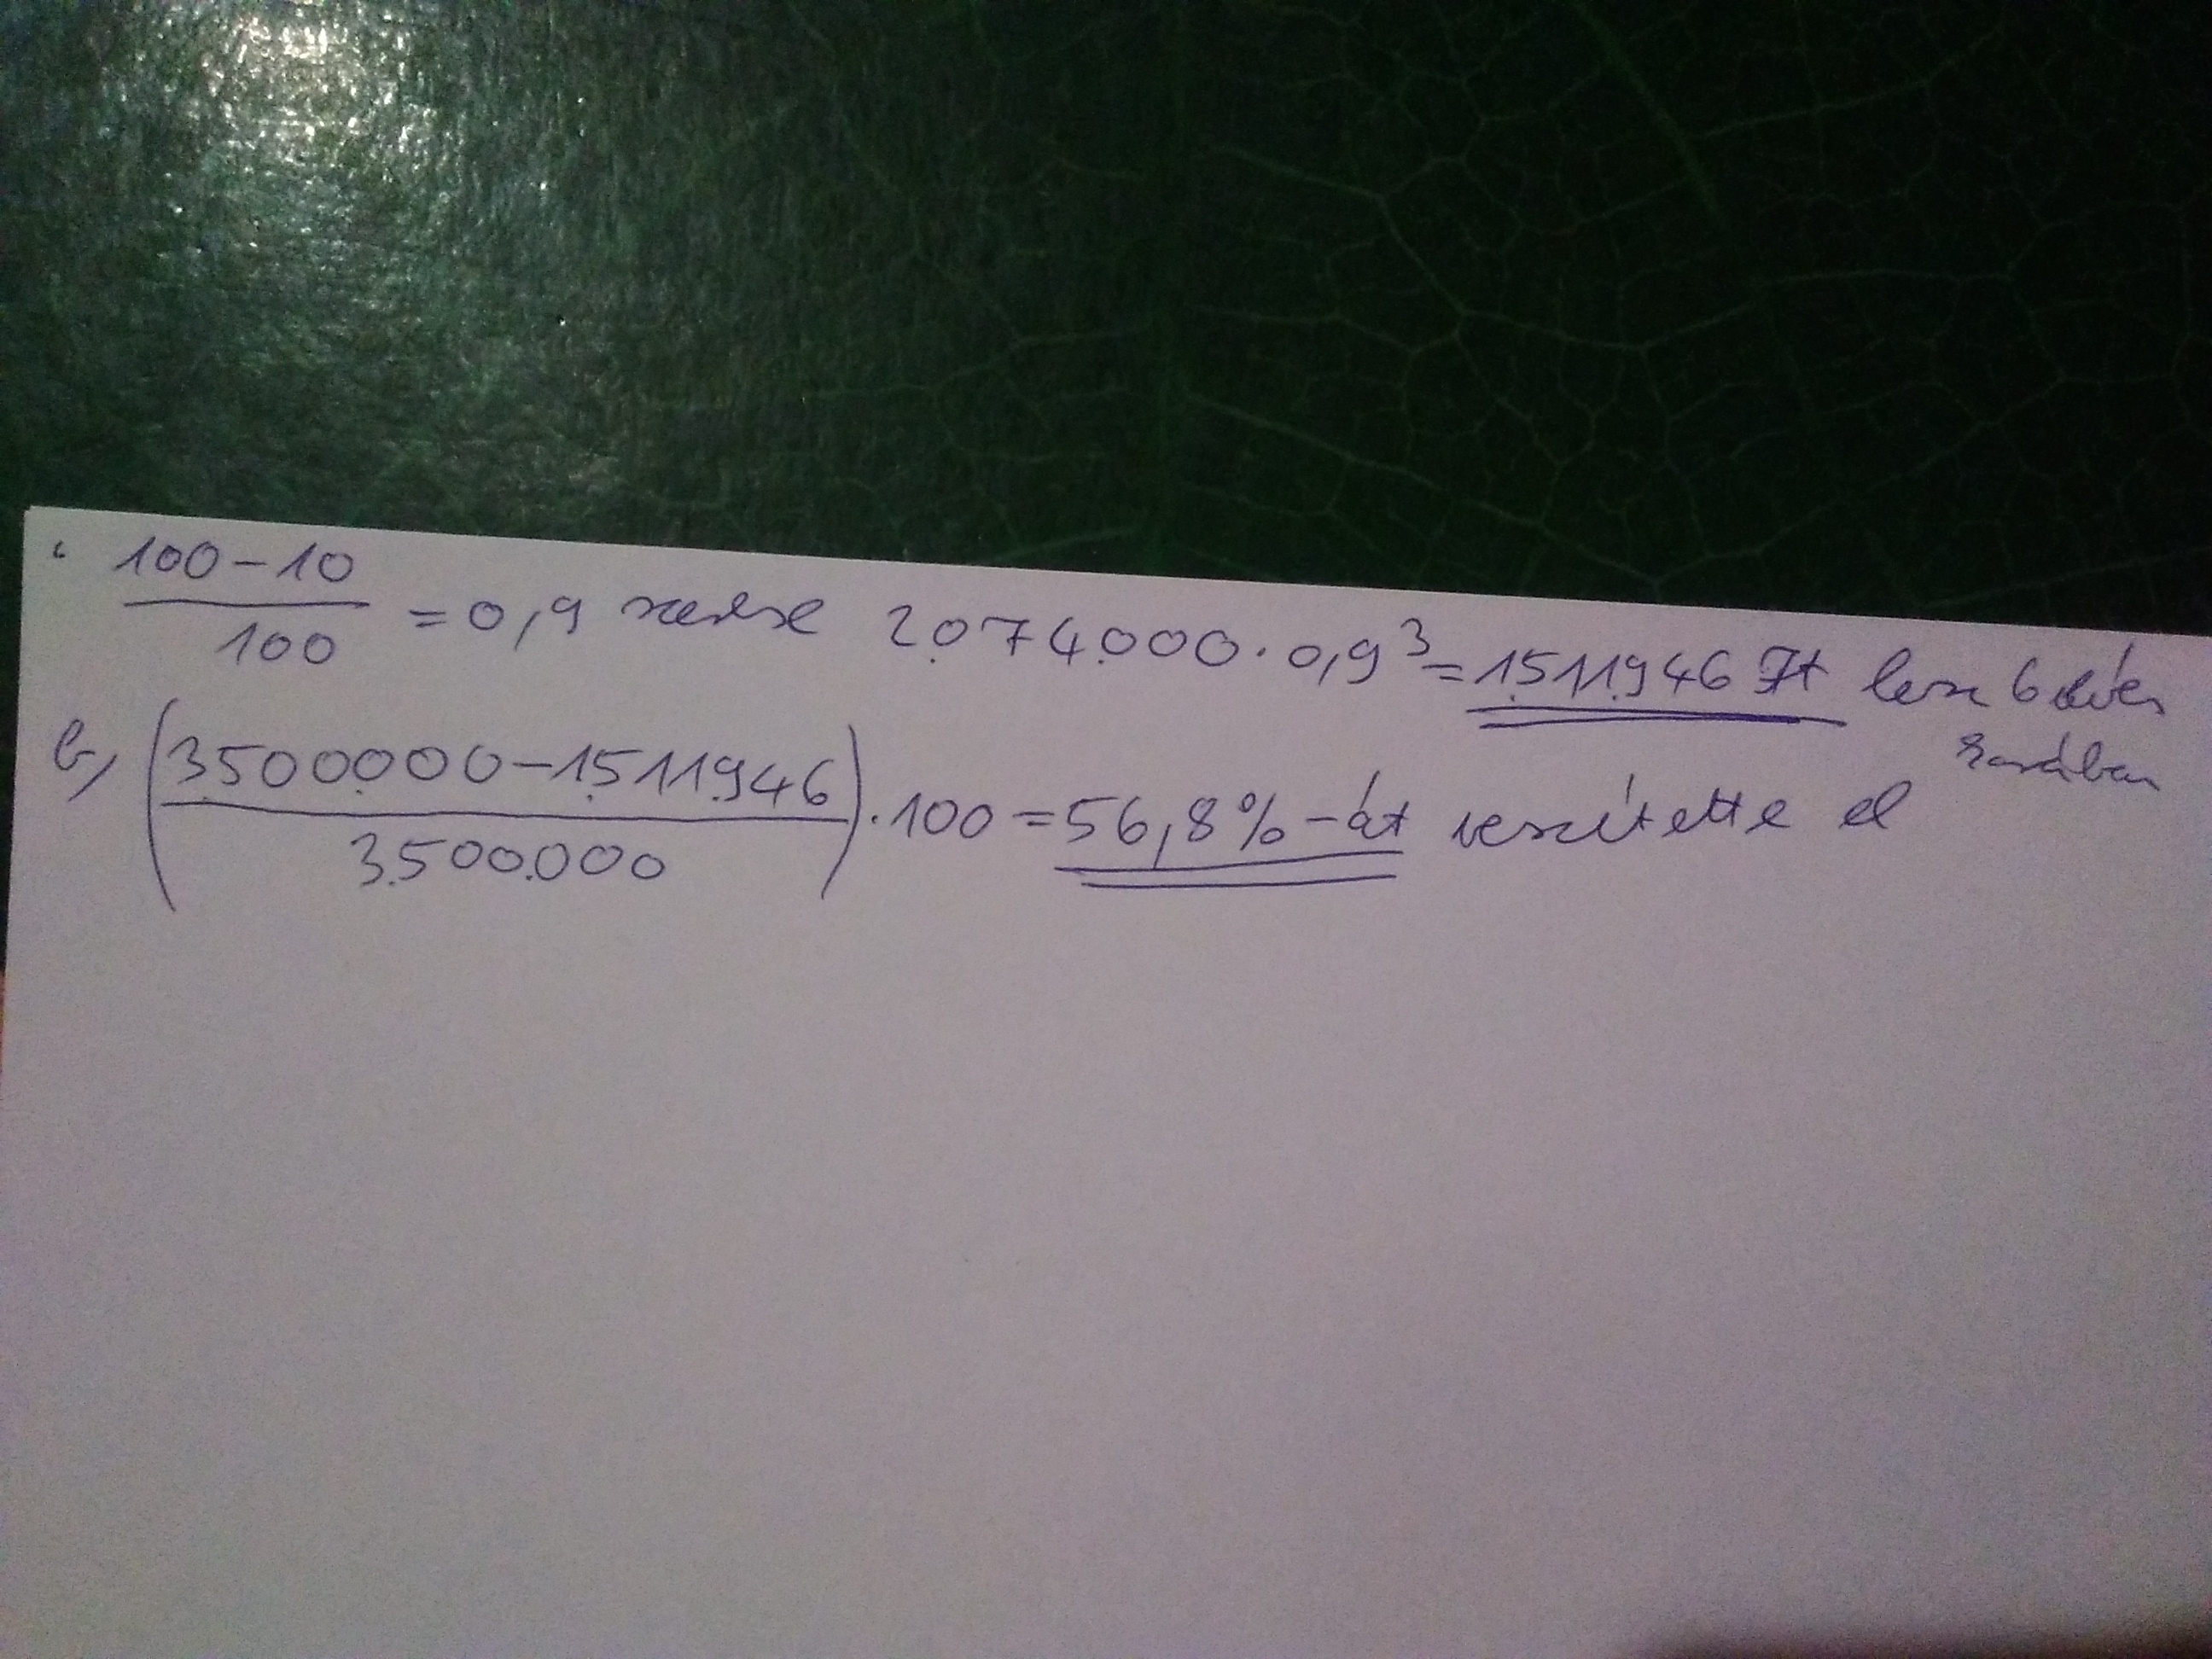 100-10 / 100 = 0,9 szerese 2.074.000 · 0,9³ = 1.511.946 Ft lesz 6 éves
korában
b, (3.500.000 - 1.511.946 / 3.500.000) · 100 = 56,8%-át veszítette el